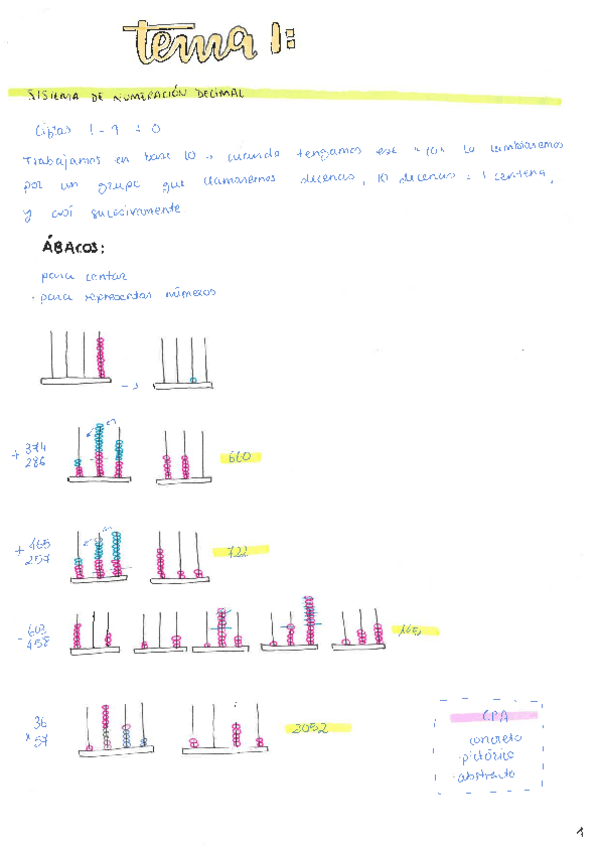 tema 1:
SISTEMA DE NUMERACIÓN DECIMAL
Cifras 1 - 9 + 0
Trabajamos en base 10 → cuando tengamos ese "10" lo cambiaremos
por un grupo que llamaremos decenas, 10 decenas = 1 centena,
y así sucesivamente
ÁBACOS:
para contar
· para representar números
+ 374
286
660
+ 465
257
722
- 603
458
36
x 57
2052
CPA
concreto
· pictórico
· abstracto
1